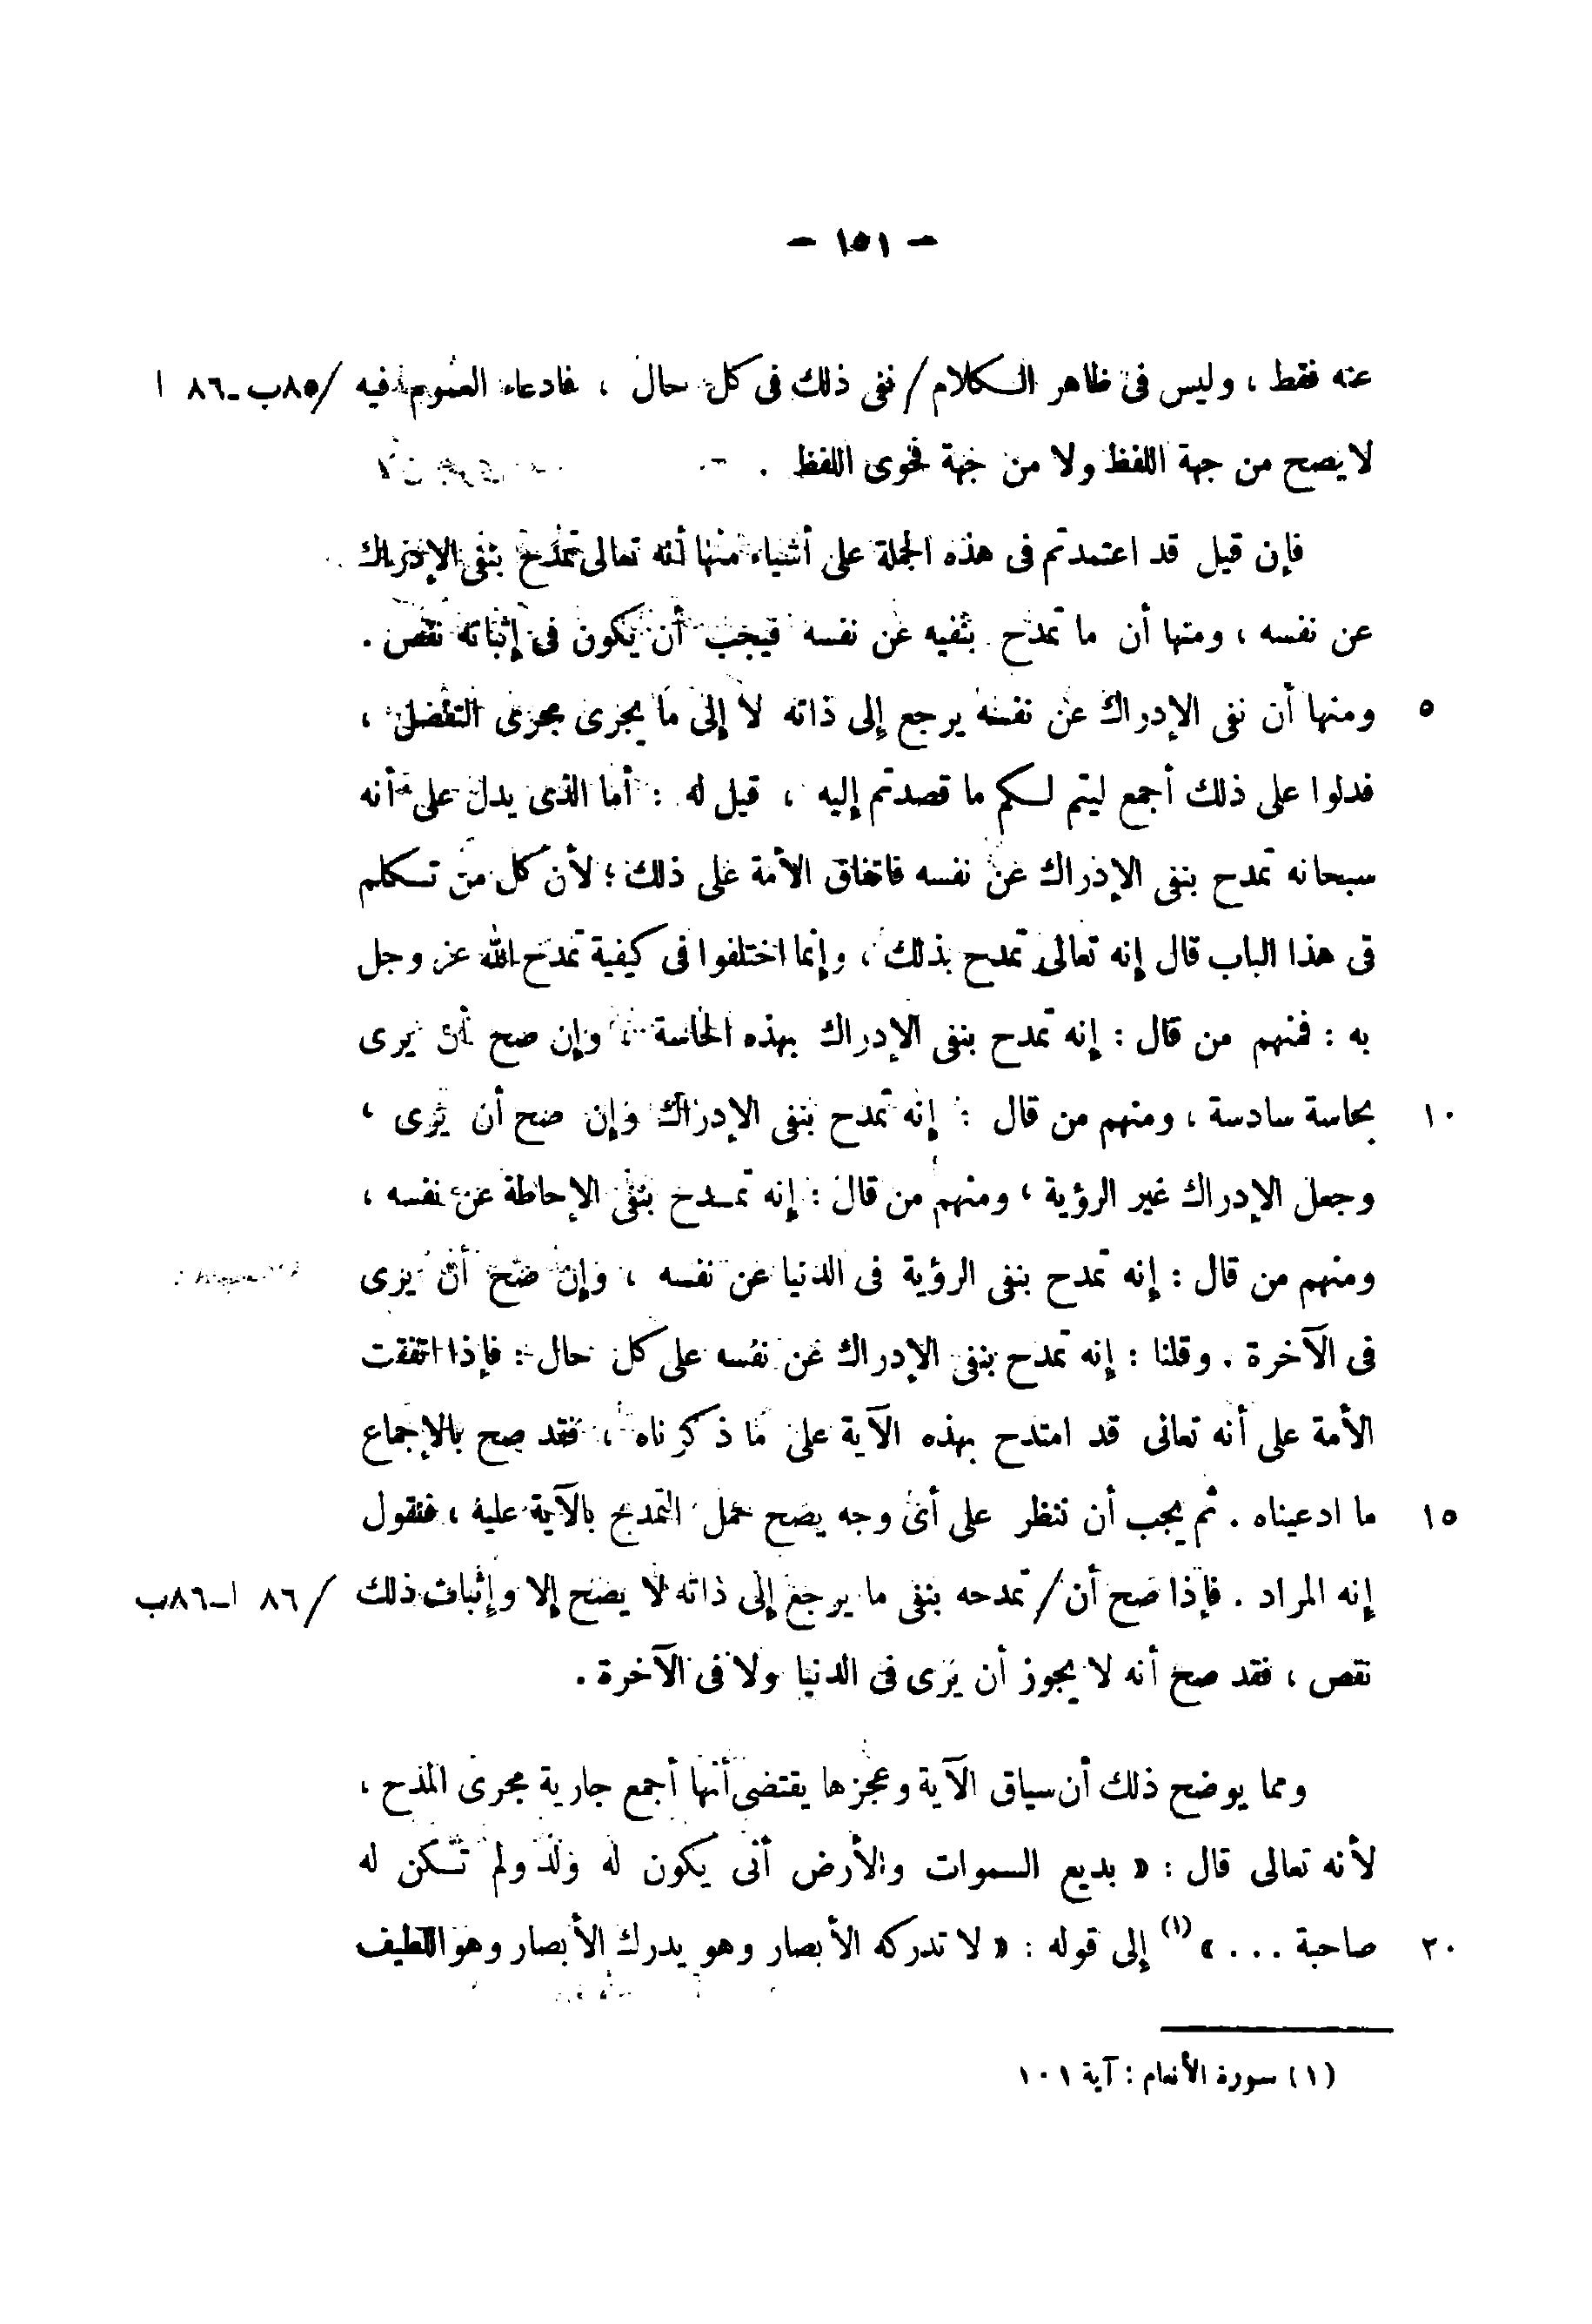 — ١٥١ —
عنه فقط ، وليس فى ظاهر الكلام / نفى ذلك فى كل حال ، فادعاء العموم فيه /٨٥ب ـ ٨٦ ا
لا يصح من جهة اللفظ ولا من جهة فحوى اللفظ .
فإن قيل قد اعتمدتم فى هذه الجملة على أشياء منها أنه تعالى تمدح بنفى الإدراك
عن نفسه ، ومنها أن ما تمدح بنفيه عن نفسه فيجب أن يكون فى إثباته نقص .
٥ ومنها أن نفى الإدراك عن نفسه يرجع إلى ذاته لا إلى ما يجرى مجرى التفضل ،
فدلوا على ذلك أجمع ليتم لكم ما قصدتم إليه ، قيل له : أما الذى يدل على أنه
سبحانه تمدح بنفى الإدراك عن نفسه فاتفاق الأمة على ذلك ؛ لأن كل من تكلم
فى هذا الباب قال إنه تعالى تمدح بذلك ، وإنما اختلفوا فى كيفية تمدح الله عز وجل
به : فمنهم من قال : إنه تمدح بنفى الإدراك بهذه الحاسة ، وإن صح أن يرى
١٠ بحاسة سادسة ، ومنهم من قال : إنه تمدح بنفى الإدراك وإن صح أن يرى ،
وجعل الإدراك غير الرؤية ، ومنهم من قال : إنه تمدح بنفى الإحاطة عن نفسه ،
ومنهم من قال : إنه تمدح بنفى الرؤية فى الدنيا عن نفسه ، وإن صح أن يرى
فى الآخرة . وقلنا : إنه تمدح بنفى الإدراك عن نفسه على كل حال : فإذا اتفقت
الأمة على أنه تعالى قد امتدح بهذه الآية على ما ذكرناه ، فقد صح بالإجماع
١٥ ما ادعيناه . ثم يجب أن ننظر على أى وجه يصح حمل التمدح بالآية عليه ، فنقول
إنه المراد . فإذا صح أن / تمدحه بنفى ما يرجع إلى ذاته لا يصح إلا وإثبات ذلك /٨٦ ا ـ ٨٦ب
نقص ، فقد صح أنه لا يجوز أن يرى فى الدنيا ولا فى الآخرة .
ومما يوضح ذلك أن سياق الآية وعجزها يقتضى أنها أجمع جارية مجرى المدح ،
لأنه تعالى قال : « بديع السموات والأرض أنى يكون له ولد ولم تكن له
٢٠ صاحبة ... » (١) إلى قوله : « لا تدركه الأبصار وهو يدرك الأبصار وهو اللطيف
(١) سورة الأنعام : آية ١٠١